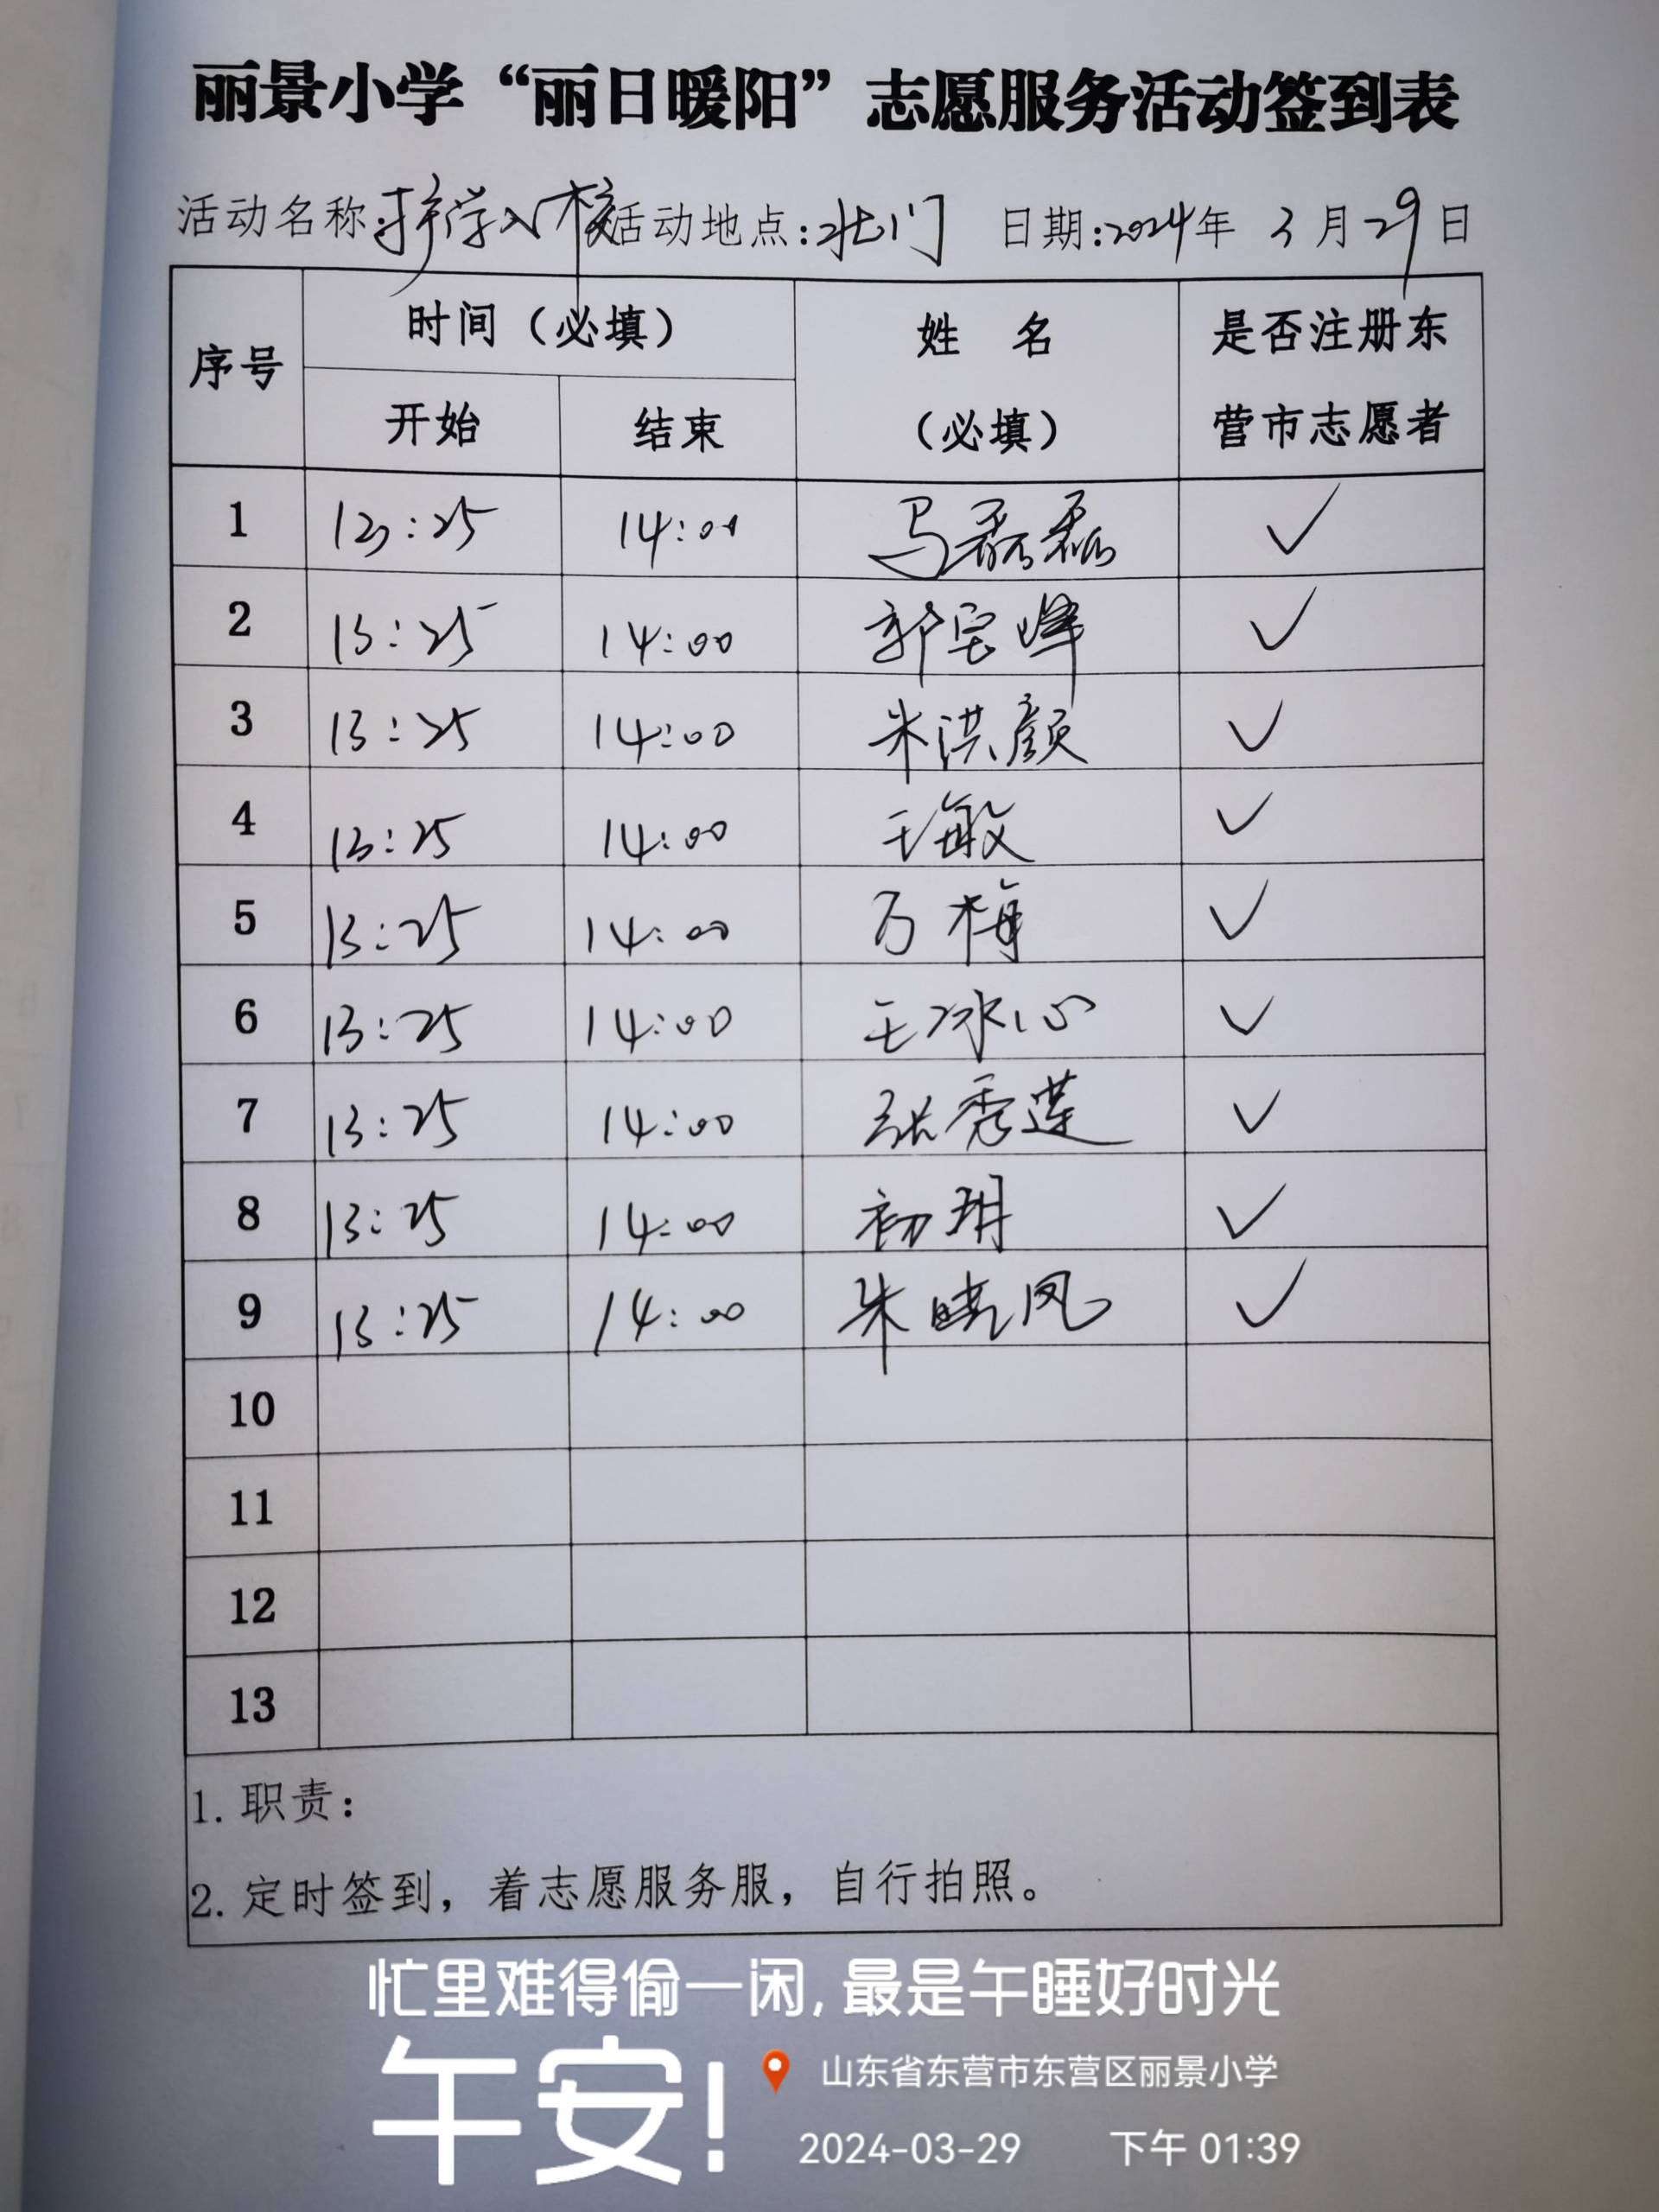 丽景小学“丽日暖阳”志愿服务活动签到表
活动名称:护学入校 活动地点:北门 日期:2024年 3月29日
序号 时间（必填） 姓 名 （必填） 是否注册东营市志愿者
开始 结束
1 13:25 14:00 马磊磊 ✓
2 13:25 14:00 郭宝峰 ✓
3 13:25 14:00 朱洪颜 ✓
4 13:25 14:00 王敏 ✓
5 13:25 14:00 万梅 ✓
6 13:25 14:00 王冰心 ✓
7 13:25 14:00 张秀莲 ✓
8 13:25 14:00 初玥 ✓
9 13:25 14:00 朱晓凤 ✓
10
11
12
13
1. 职责:
2. 定时签到，着志愿服务服，自行拍照。
忙里难得偷一闲,最是午睡好时光
午安!
山东省东营市东营区丽景小学
2024-03-29 下午 01:39